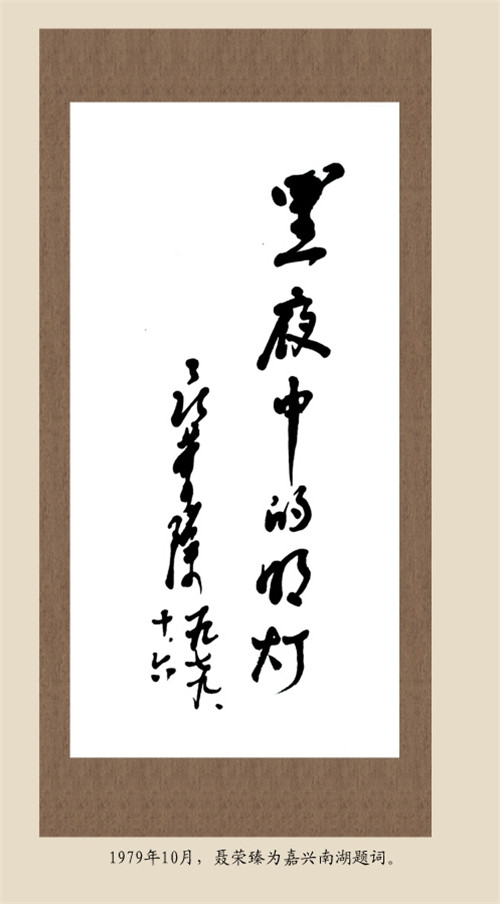 黑夜中的明灯
聂荣臻
一九七九、
十、六
1979年10月，聂荣臻为嘉兴南湖题词。